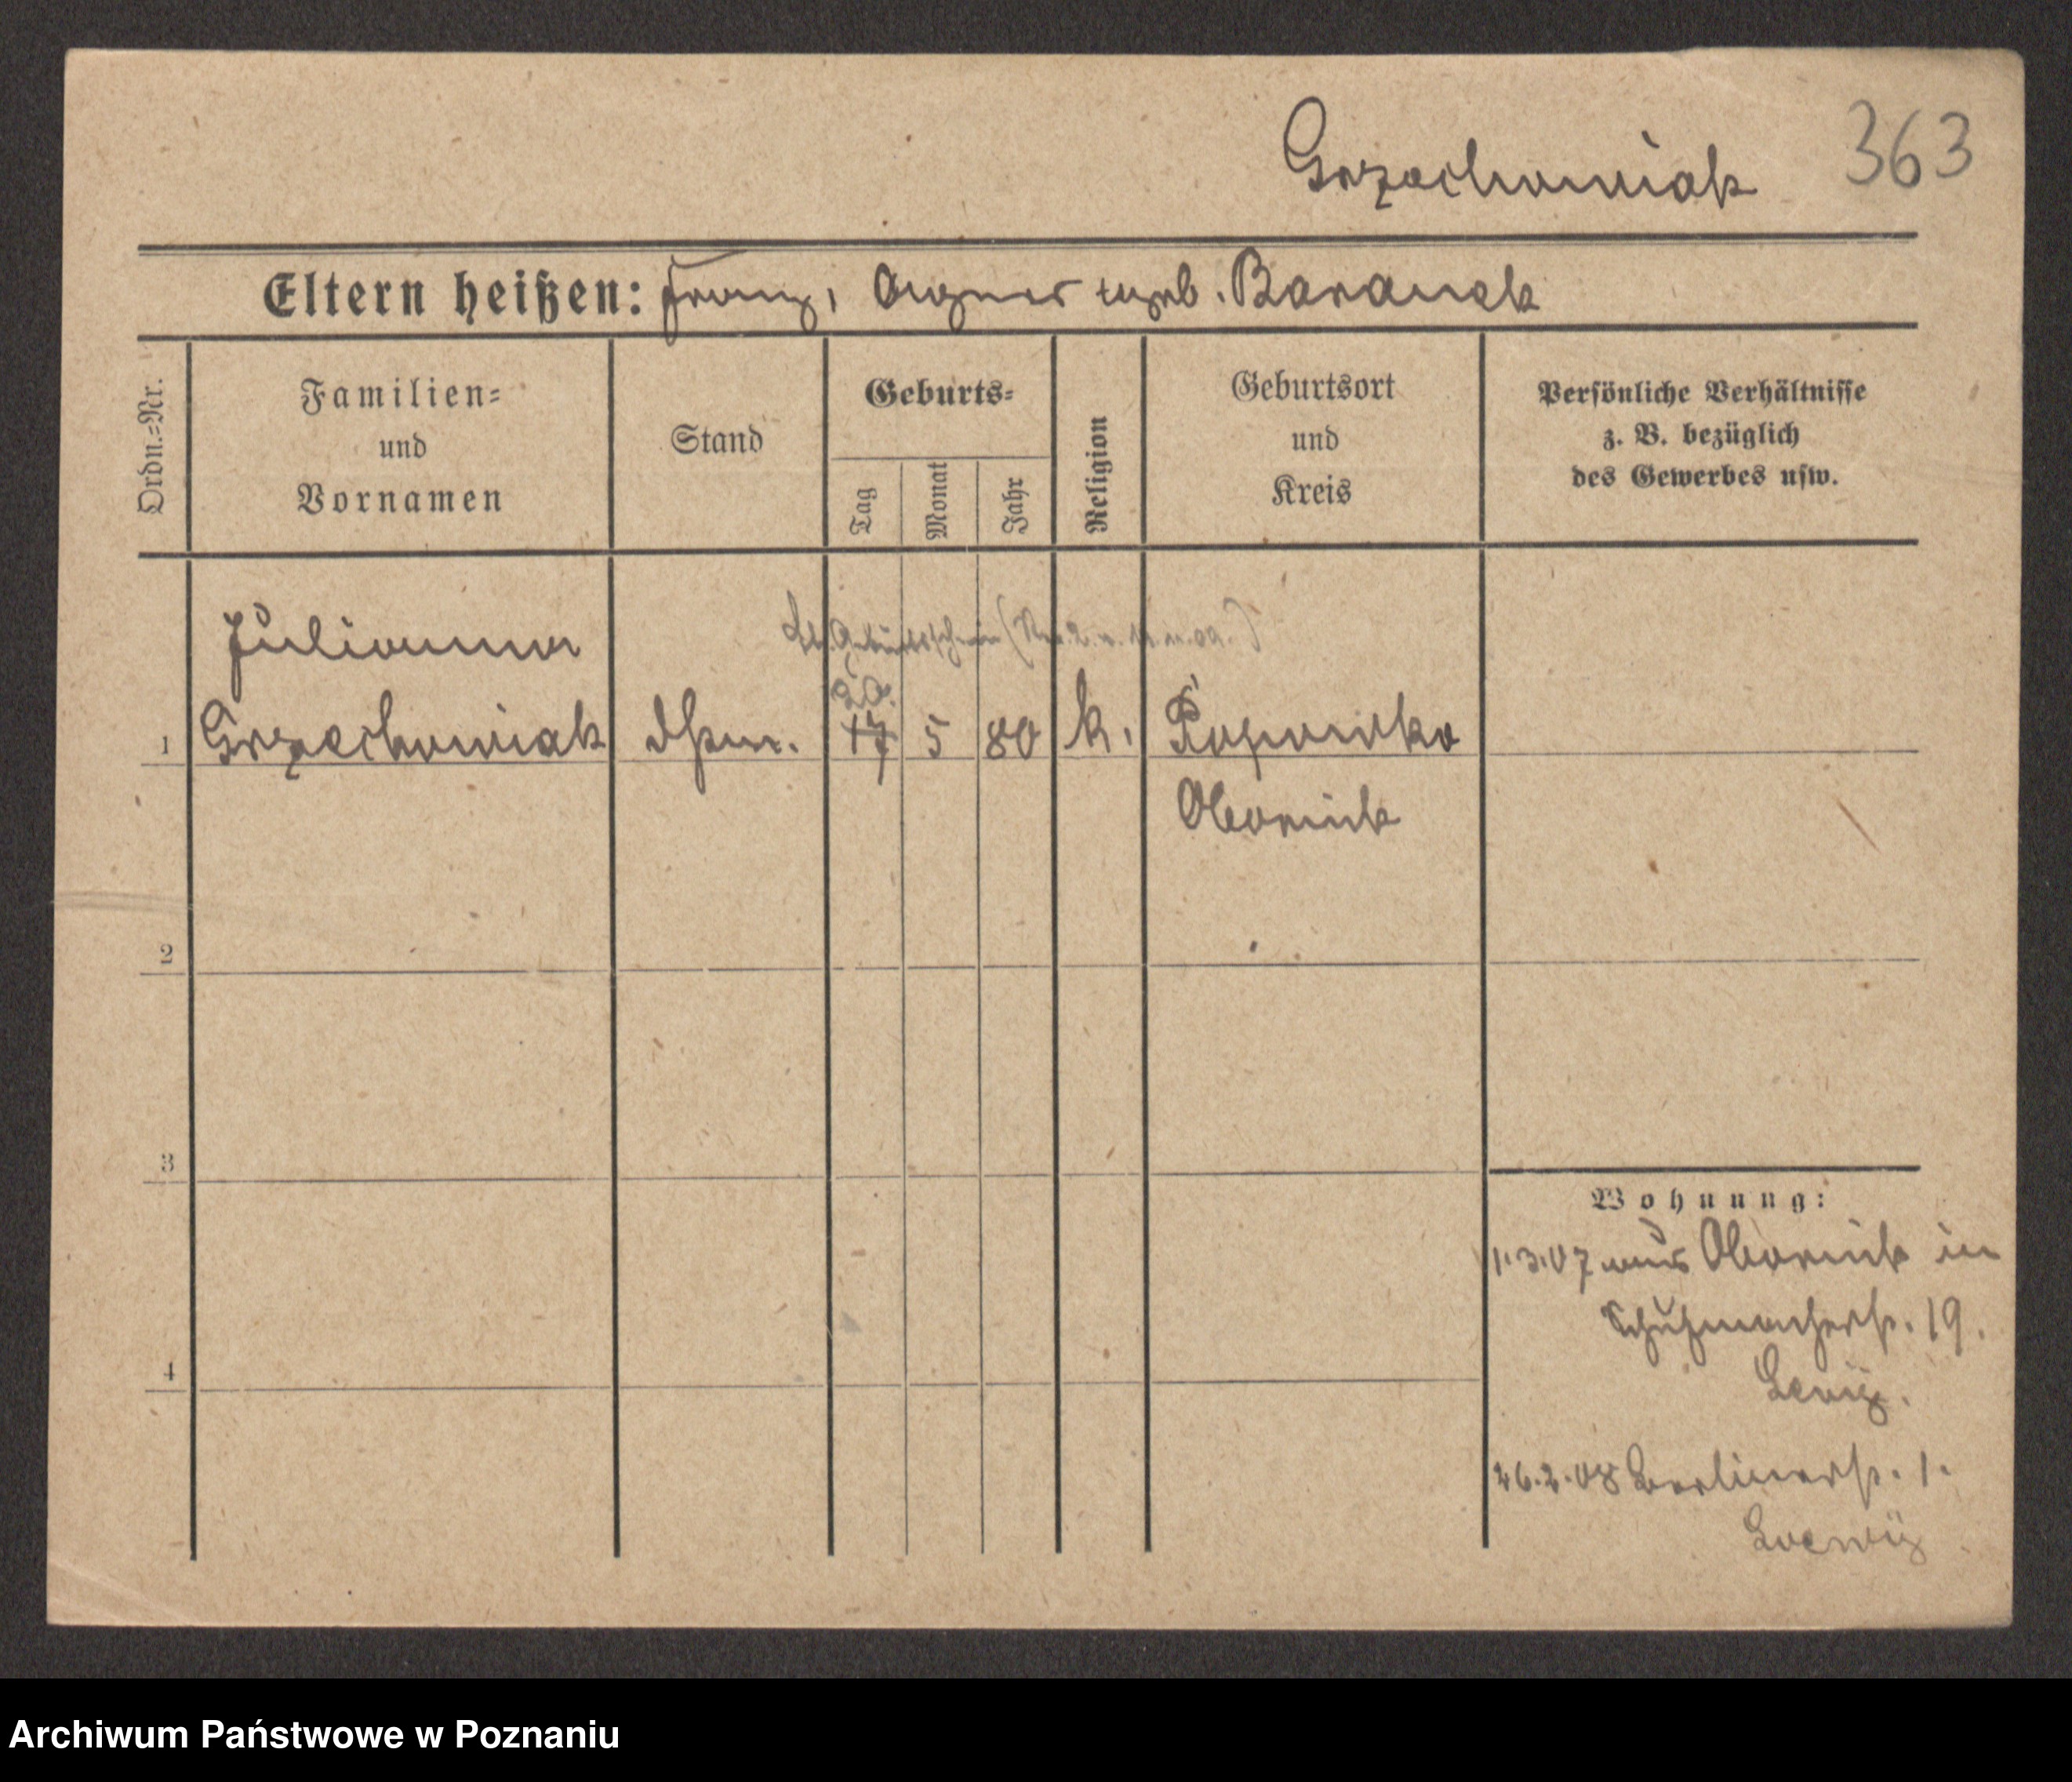 Grzechowiak 363
Eltern heißen: Franz, Agnes geb. Baranek
Ordn.=Nr.
Familien=
und
Vornamen
Stand
Geburts=
Tag
Monat
Jahr
Religion
Geburtsort
und
Kreis
Persönliche Verhältnisse
z. B. bezüglich
des Gewerbes usw.
Julianna
lt. Geburtsschein
20.
1 Grzechowiak 17 5 80 k. Popowko
Obornik
2
3
Wohnung:
1.3.07 aus Obornik in
Schuhmacherstr. 19.
4
26.2.08 Berlinerstr. 1.
Archiwum Państwowe w Poznaniu